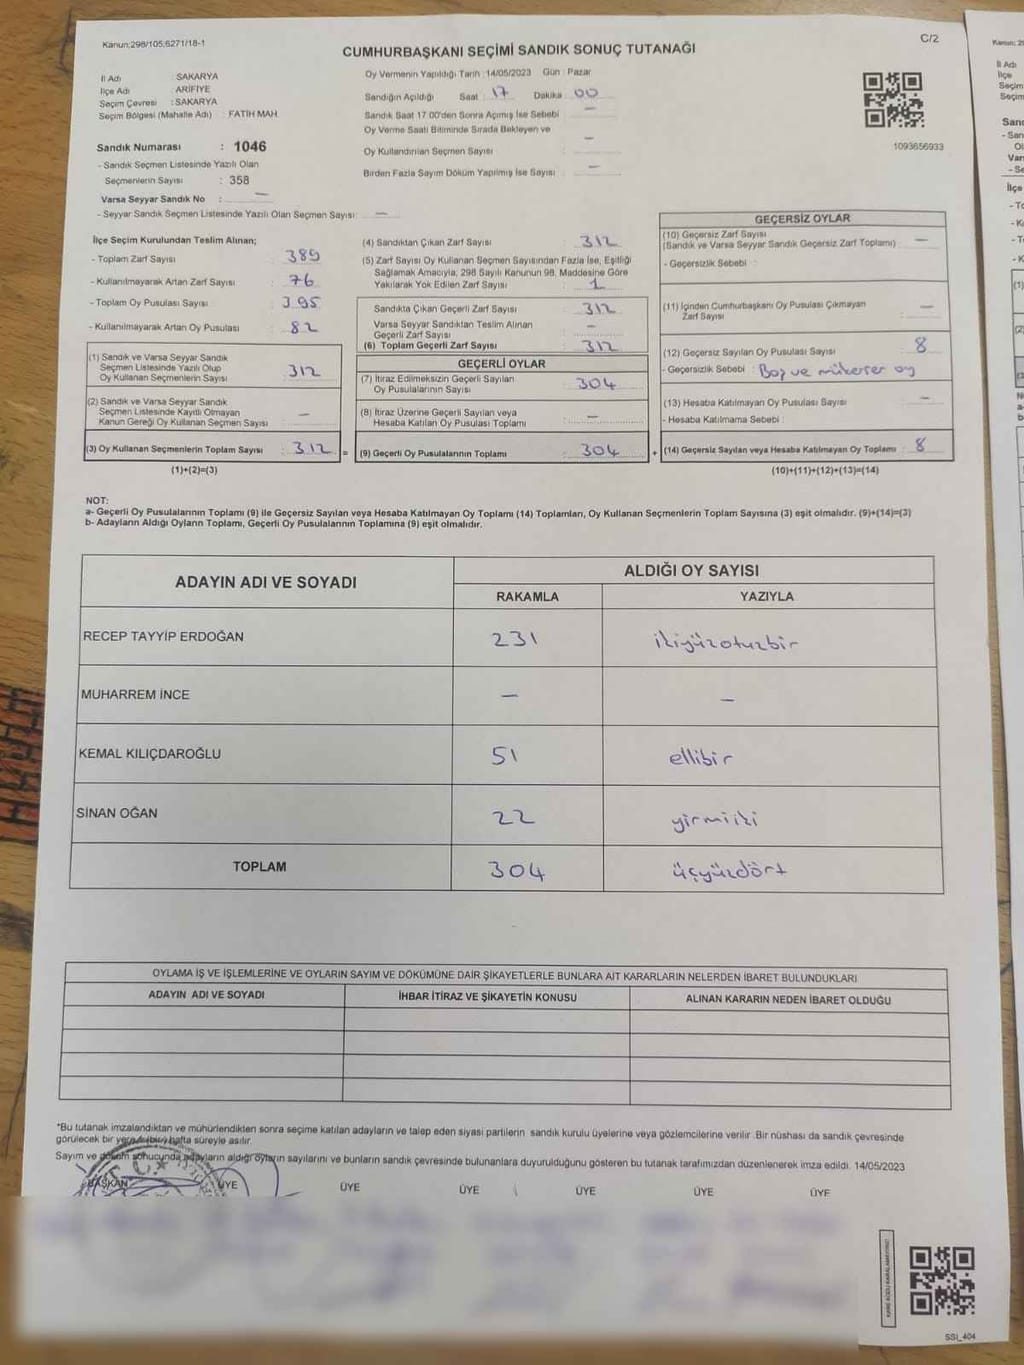 Kanun:298/105;6271/18-1
C/2
CUMHURBAŞKANI SEÇİMİ SANDIK SONUÇ TUTANAĞI
İl Adı : SAKARYA
İlçe Adı : ARİFİYE
Seçim Çevresi : SAKARYA
Seçim Bölgesi (Mahalle Adı) : FATİH MAH.
Oy Vermenin Yapıldığı Tarih :14/05/2023 Gün : Pazar
Sandığın Açıldığı Saat : 17 Dakika : 00
Sandık Saat 17.00'den Sonra Açımış İse Sebebi : —
Oy Verme Saati Bitiminde Sırada Bekleyen ve
Oy Kullandırılan Seçmen Sayısı : —
Birden Fazla Sayım Döküm Yapılmış İse Sayısı : —
1093656933
Sandık Numarası : 1046
- Sandık Seçmen Listesinde Yazılı Olan
Seçmenlerin Sayısı : 358
Varsa Seyyar Sandık No : —
- Seyyar Sandık Seçmen Listesinde Yazılı Olan Seçmen Sayısı: —
İlçe Seçim Kurulundan Teslim Alınan;
- Toplam Zarf Sayısı : 389
- Kullanılmayarak Artan Zarf Sayısı : 76
- Toplam Oy Pusulası Sayısı : 395
- Kullanılmayarak Artan Oy Pusulası : 82
(1) Sandık ve Varsa Seyyar Sandık
Seçmen Listesinde Yazılı Olup
Oy Kullanan Seçmenlerin Sayısı : 312
(2) Sandık ve Varsa Seyyar Sandık
Seçmen Listesinde Kayıtlı Olmayan
Kanun Gereği Oy Kullanan Seçmen Sayısı : —
(3) Oy Kullanan Seçmenlerin Toplam Sayısı : 312 =
(1)+(2)=(3)
(4) Sandıktan Çıkan Zarf Sayısı : 312
(5) Zarf Sayısı Oy Kullanan Seçmen Sayısından Fazla İse, Eşitliği
Sağlamak Amacıyla, 298 Sayılı Kanunun 98. Maddesine Göre
Yakılarak Yok Edilen Zarf Sayısı : 1
Sandıkta Çıkan Geçerli Zarf Sayısı : 312
Varsa Seyyar Sandıktan Teslim Alınan
Geçerli Zarf Sayısı : —
(6) Toplam Geçerli Zarf Sayısı : 312
GEÇERLİ OYLAR
(7) İtiraz Edilmeksizin Geçerli Sayılan
Oy Pusulalarının Sayısı : 304
(8) İtiraz Üzerine Geçerli Sayılan veya
Hesaba Katılan Oy Pusulası Toplamı : —
(9) Geçerli Oy Pusulalarının Toplamı : 304 +
GEÇERSİZ OYLAR
(10) Geçersiz Zarf Sayısı
(Sandık ve Varsa Seyyar Sandık Geçersiz Zarf Toplamı) —
- Geçersizlik Sebebi :
(11) İçinden Cumhurbaşkanı Oy Pusulası Çıkmayan
Zarf Sayısı : —
(12) Geçersiz Sayılan Oy Pusulası Sayısı : 8
- Geçersizlik Sebebi : Boş ve mükerrer oy
(13) Hesaba Katılmayan Oy Pusulası Sayısı : —
- Hesaba Katılmama Sebebi :
(14) Geçersiz Sayılan veya Hesaba Katılmayan Oy Toplamı : 8
(10)+(11)+(12)+(13)=(14)
NOT:
a- Geçerli Oy Pusulalarının Toplamı (9) ile Geçersiz Sayılan veya Hesaba Katılmayan Oy Toplamı (14) Toplamları, Oy Kullanan Seçmenlerin Toplam Sayısına (3) eşit olmalıdır. (9)+(14)=(3)
b- Adayların Aldığı Oyların Toplamı, Geçerli Oy Pusulalarının Toplamına (9) eşit olmalıdır.
ADAYIN ADI VE SOYADI
ALDIĞI OY SAYISI
RAKAMLA YAZIYLA
RECEP TAYYİP ERDOĞAN 231 ikiyüzotuzbir
MUHARREM İNCE — —
KEMAL KILIÇDAROĞLU 51 ellibir
SİNAN OĞAN 22 yirmiiki
TOPLAM 304 üçyüzdört
OYLAMA İŞ VE İŞLEMLERİNE VE OYLARIN SAYIM VE DÖKÜMÜNE DAİR ŞİKAYETLERLE BUNLARA AİT KARARLARIN NELERDEN İBARET BULUNDUKLARI
ADAYIN ADI VE SOYADI İHBAR İTİRAZ VE ŞİKAYETİN KONUSU ALINAN KARARIN NEDEN İBARET OLDUĞU
*Bu tutanak imzalandıktan ve mühürlendikten sonra seçime katılan adayların ve talep eden siyasi partilerin sandık kurulu üyelerine veya gözlemcilerine verilir .Bir nüshası da sandık çevresinde
görülecek bir yere 1 (bir) hafta süreyle asılır.
Sayım ve döküm sonucunda adayların aldığı oyların sayılarını ve bunların sandık çevresinde bulunanlara duyurulduğunu gösteren bu tutanak tarafımızdan düzenlenerek imza edildi. 14/05/2023
BAŞKAN ÜYE ÜYE ÜYE ÜYE ÜYE ÜYE
SSI_404